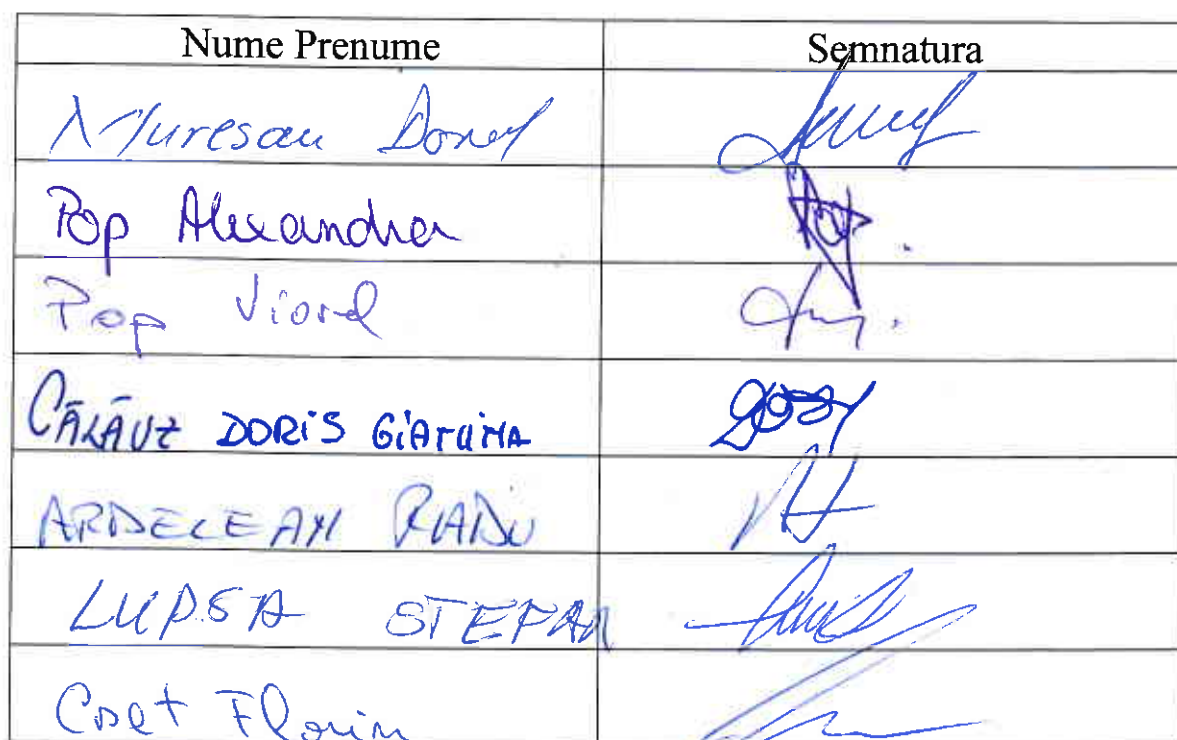 Nume Prenume Semnatura
Muresan Dorel
Pop Alexandra
Pop Viorel
CĂLĂUZ DORIS
ARDELEAN RADU
LUPSA STEFAN
Florin